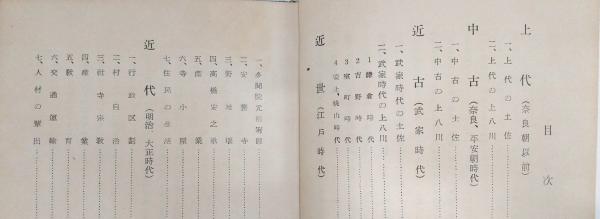 目次
上代（奈良朝以前）
一、上代の土佐
二、上代の上八川
中古（奈良、平安朝時代）
一、中古の土佐
二、中古の上八川
近古（武家時代）
一、武家時代の土佐
二、武家時代の上八川
1 鎌倉時代
2 吉野時代
3 室町時代
4 安土、桃山時代
近世（江戸時代）
一、多聞院元祖
二、安養寺
三、野地
四、高橋安之
五、産業
六、寺小屋
七、住民の生活
近代（明治、大正時代）
一、行政区劃
二、村自治
三、社寺宗教
四、産業
五、教育
六、交通運輸
七、人材の輩出